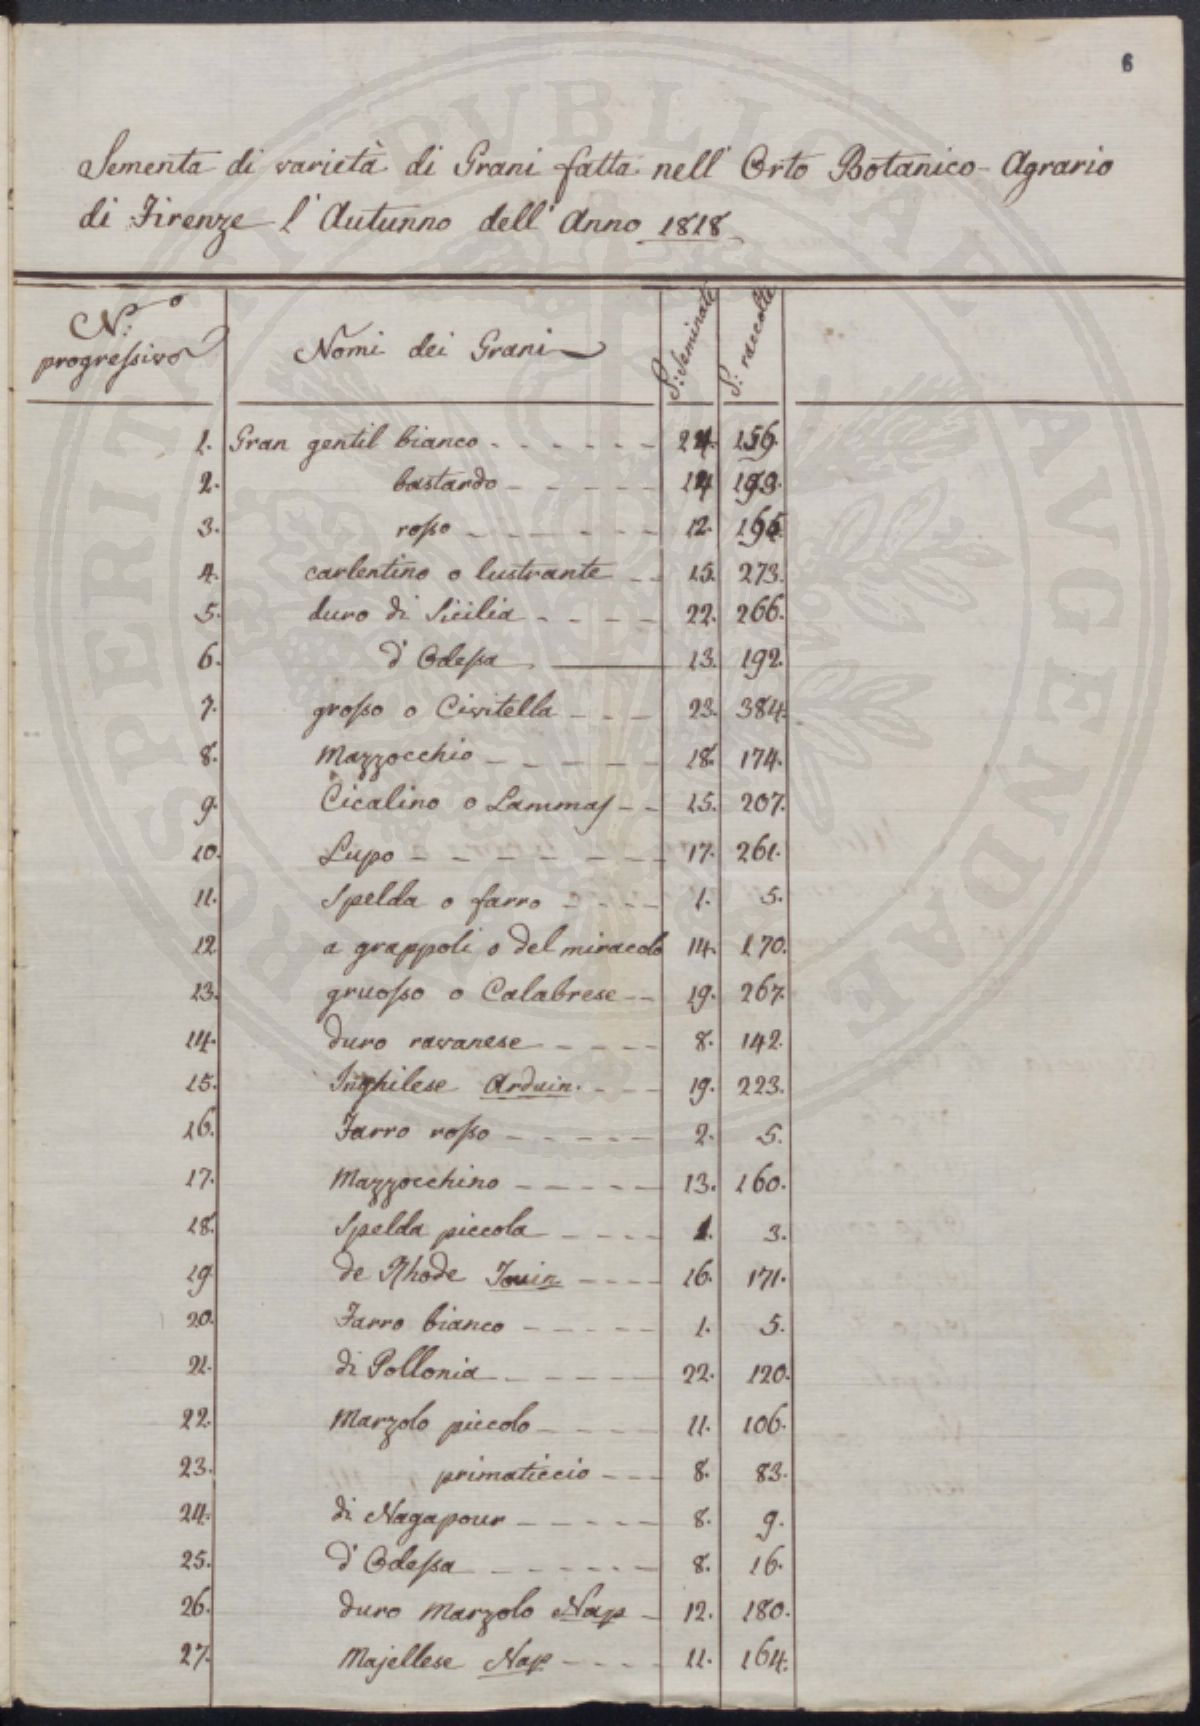 6
Sementa di varietà di Grani fatta nell' Orto Botanico-Agrario
di Firenze l'Autunno dell'Anno 1818
N.º progressivo Nomi dei Grani S: Seminate S: raccolte
1. Gran gentil bianco 156.
2. bastardo
3. rosso 12.
4. carlentino o lustrante 15. 273.
5. duro di Sicilia 22. 266.
6. d'Odessa 13. 192.
7. grosso o Civitella 23. 384.
8. Mazzocchio 18. 174.
9. Cicalino o Lammas 15. 207.
10. Lupo 17. 261.
11. Spelda o farro 1. 5.
12. a grappoli o del miracolo 14. 170.
13. gruosso o Calabrese 19. 267.
14. duro ravanese 8. 142.
15. Inghilese Arduin. 19. 223.
16. Farro rosso 2. 5.
17. Mazzocchino 13. 160.
18. Spelda piccola 1. 3.
19. de Rhode 16. 171.
20. Farro bianco 1. 5.
21. di Pollonia 22. 120.
22. Marzolo piccolo 11. 106.
23. primaticcio 8. 83.
24. di Nagapour 8. 9.
25. d'Odessa 8. 16.
26. duro Marzolo Nap 12. 180.
27. Majellese Nap 11. 164.
PROSPERITATI PVBLICAE AVGENDAE